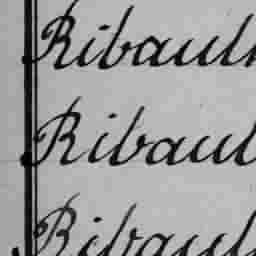 Ribaul
Ribaul
Ribaul